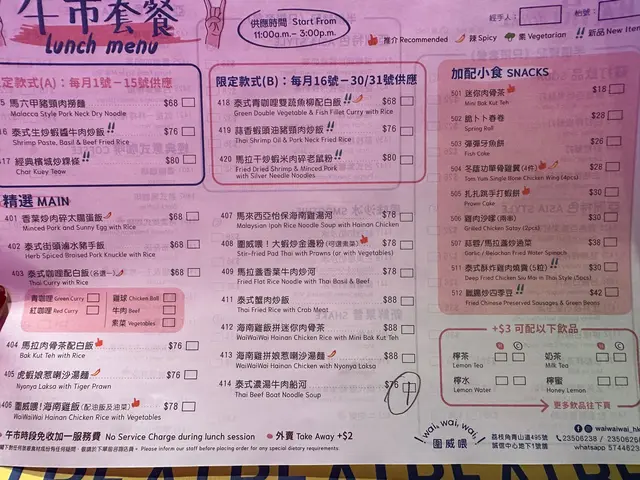 牛市套餐
lunch menu
供應時間 Start From
11:00a.m.- 3:00p.m.
經手人：
枱號：
推介 Recommended 辣 Spicy 素 Vegetarian 新品 New Item
定款式(A)：每月1號－15號供應
馬六甲豬頸肉撈麵 $68
Malacca Style Pork Neck Dry Noodle
泰式生炒蝦醬牛肉炒飯 $76
Shrimp Paste, Basil & Beef Fried Rice
417 經典檳城炒粿條 $80
Char Kuey Teow
限定款式(B)：每月16號－30/31號供應
418 泰式青咖喱雙蔬魚柳配白飯 $68
Green Double Vegetable & Fish Fillet Curry with Rice
419 蒜香蝦頭油豬頸肉炒飯 $76
Thai Shrimp Oil & Pork Neck Fried Rice
420 馬拉干炒蝦米肉碎老鼠粉 $80
Fried Dried Shrimp & Minced Pork
with Silver Needle Noodles
精選 MAIN
401 香葉炒肉碎太陽蛋飯 $68
Minced Pork and Sunny Egg with Rice
402 泰式街頭滷水豬手飯 $68
Herb Spiced Braised Pork Knuckle with Rice
403 泰式咖喱配白飯(各選一) $68
Thai Curry with Rice
青咖喱 Green Curry 雞球 Chicken Ball
紅咖喱 Red Curry 牛肉 Beef
素菜 Vegetables
404 馬拉肉骨茶配白飯 $76
Bak Kut Teh with Rice
405 虎蝦娘惹喇沙湯麵 $76
Nyanya Laksa with Tiger Prawn
406 圍威喂！海南雞飯(配油飯及油菜) $78
WaiWaiWai Hainan Chicken Rice with Vegetables
407 馬來西亞怡保海南雞湯河 $78
Malaysian Ipoh Rice Noodle Soup with Hainan Chicken
408 圍威喂！大蝦炒金邊粉(可選素菜) $78
Stir-fried Pad Thai with Prawns (or with Vegetables)
409 馬拉盞香葉牛肉炒河 $78
Fried Flat Rice Noodle with Thai Basil & Beef
411 泰式蟹肉炒飯 $88
Thai Fried Rice with Crab Meat
412 海南雞飯拼迷你肉骨茶 $88
WaiWaiWai Hainan Chicken Rice with Mini Bak Kut Teh
413 海南雞飯拼娘惹喇沙湯麵 $88
WaiWaiWai Hainan Chicken with Nyanya Laksa
414 泰式濃湯牛肉船河 $76
Thai Beef Boat Noodle Soup
中
加配小食 SNACKS
501 迷你肉骨茶 $18
Mini Bak Kut Teh
502 脆卜卜春卷 $28
Spring Roll
503 彈彈牙魚餅 $28
Fish Cake
504 冬蔭功單骨雞翼(4件) $28
Tom Yum Single Bone Chicken Wing (4pcs)
505 扎扎跳手打蝦餅 $30
Prawn Cake
506 雞肉沙嗲(兩串) $30
Grilled Chicken Satay (2pcs)
507 蒜蓉/馬拉盞炒油菜 $38
Garlic / Belachan Fried Water Spinach
511 泰式酥炸雞肉燒賣(5粒) $30
Deep Fried Chicken Siu Mai in Thai Style (5pcs)
512 欖菌炒四季豆 $42
Fried Chinese Preserved Sausages & Green Beans
+$3 可配以下飲品
檸茶 奶茶
Lemon Tea Milk Tea
檸水 檸蜜
Lemon Water Honey Lemon
更多飲品往下頁
午市時段免收加一服務費 No Service Charge during lunch session 外賣 Take Away +$2
Please inform our staff before placing order for any special dietary requirements.
wai, wai, wai,
圍威喂
waiwaiwai_hk
荔枝角青山道495號
誠信中心地下1號舖
23506238
whatsapp